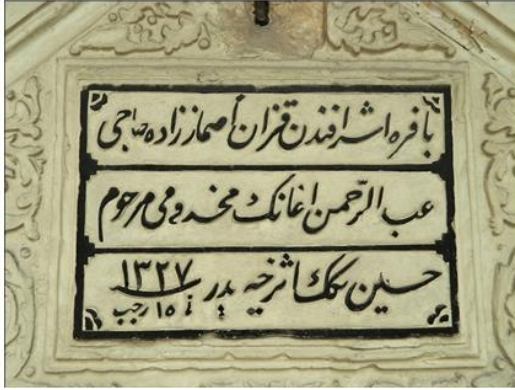 بافره اشرافندن قزان اصماز زاده حاجی
عبد الرّحمن اغانك مخدومی مرحوم
حسین بكك اثر ١٣٢٧
١٥ رجب